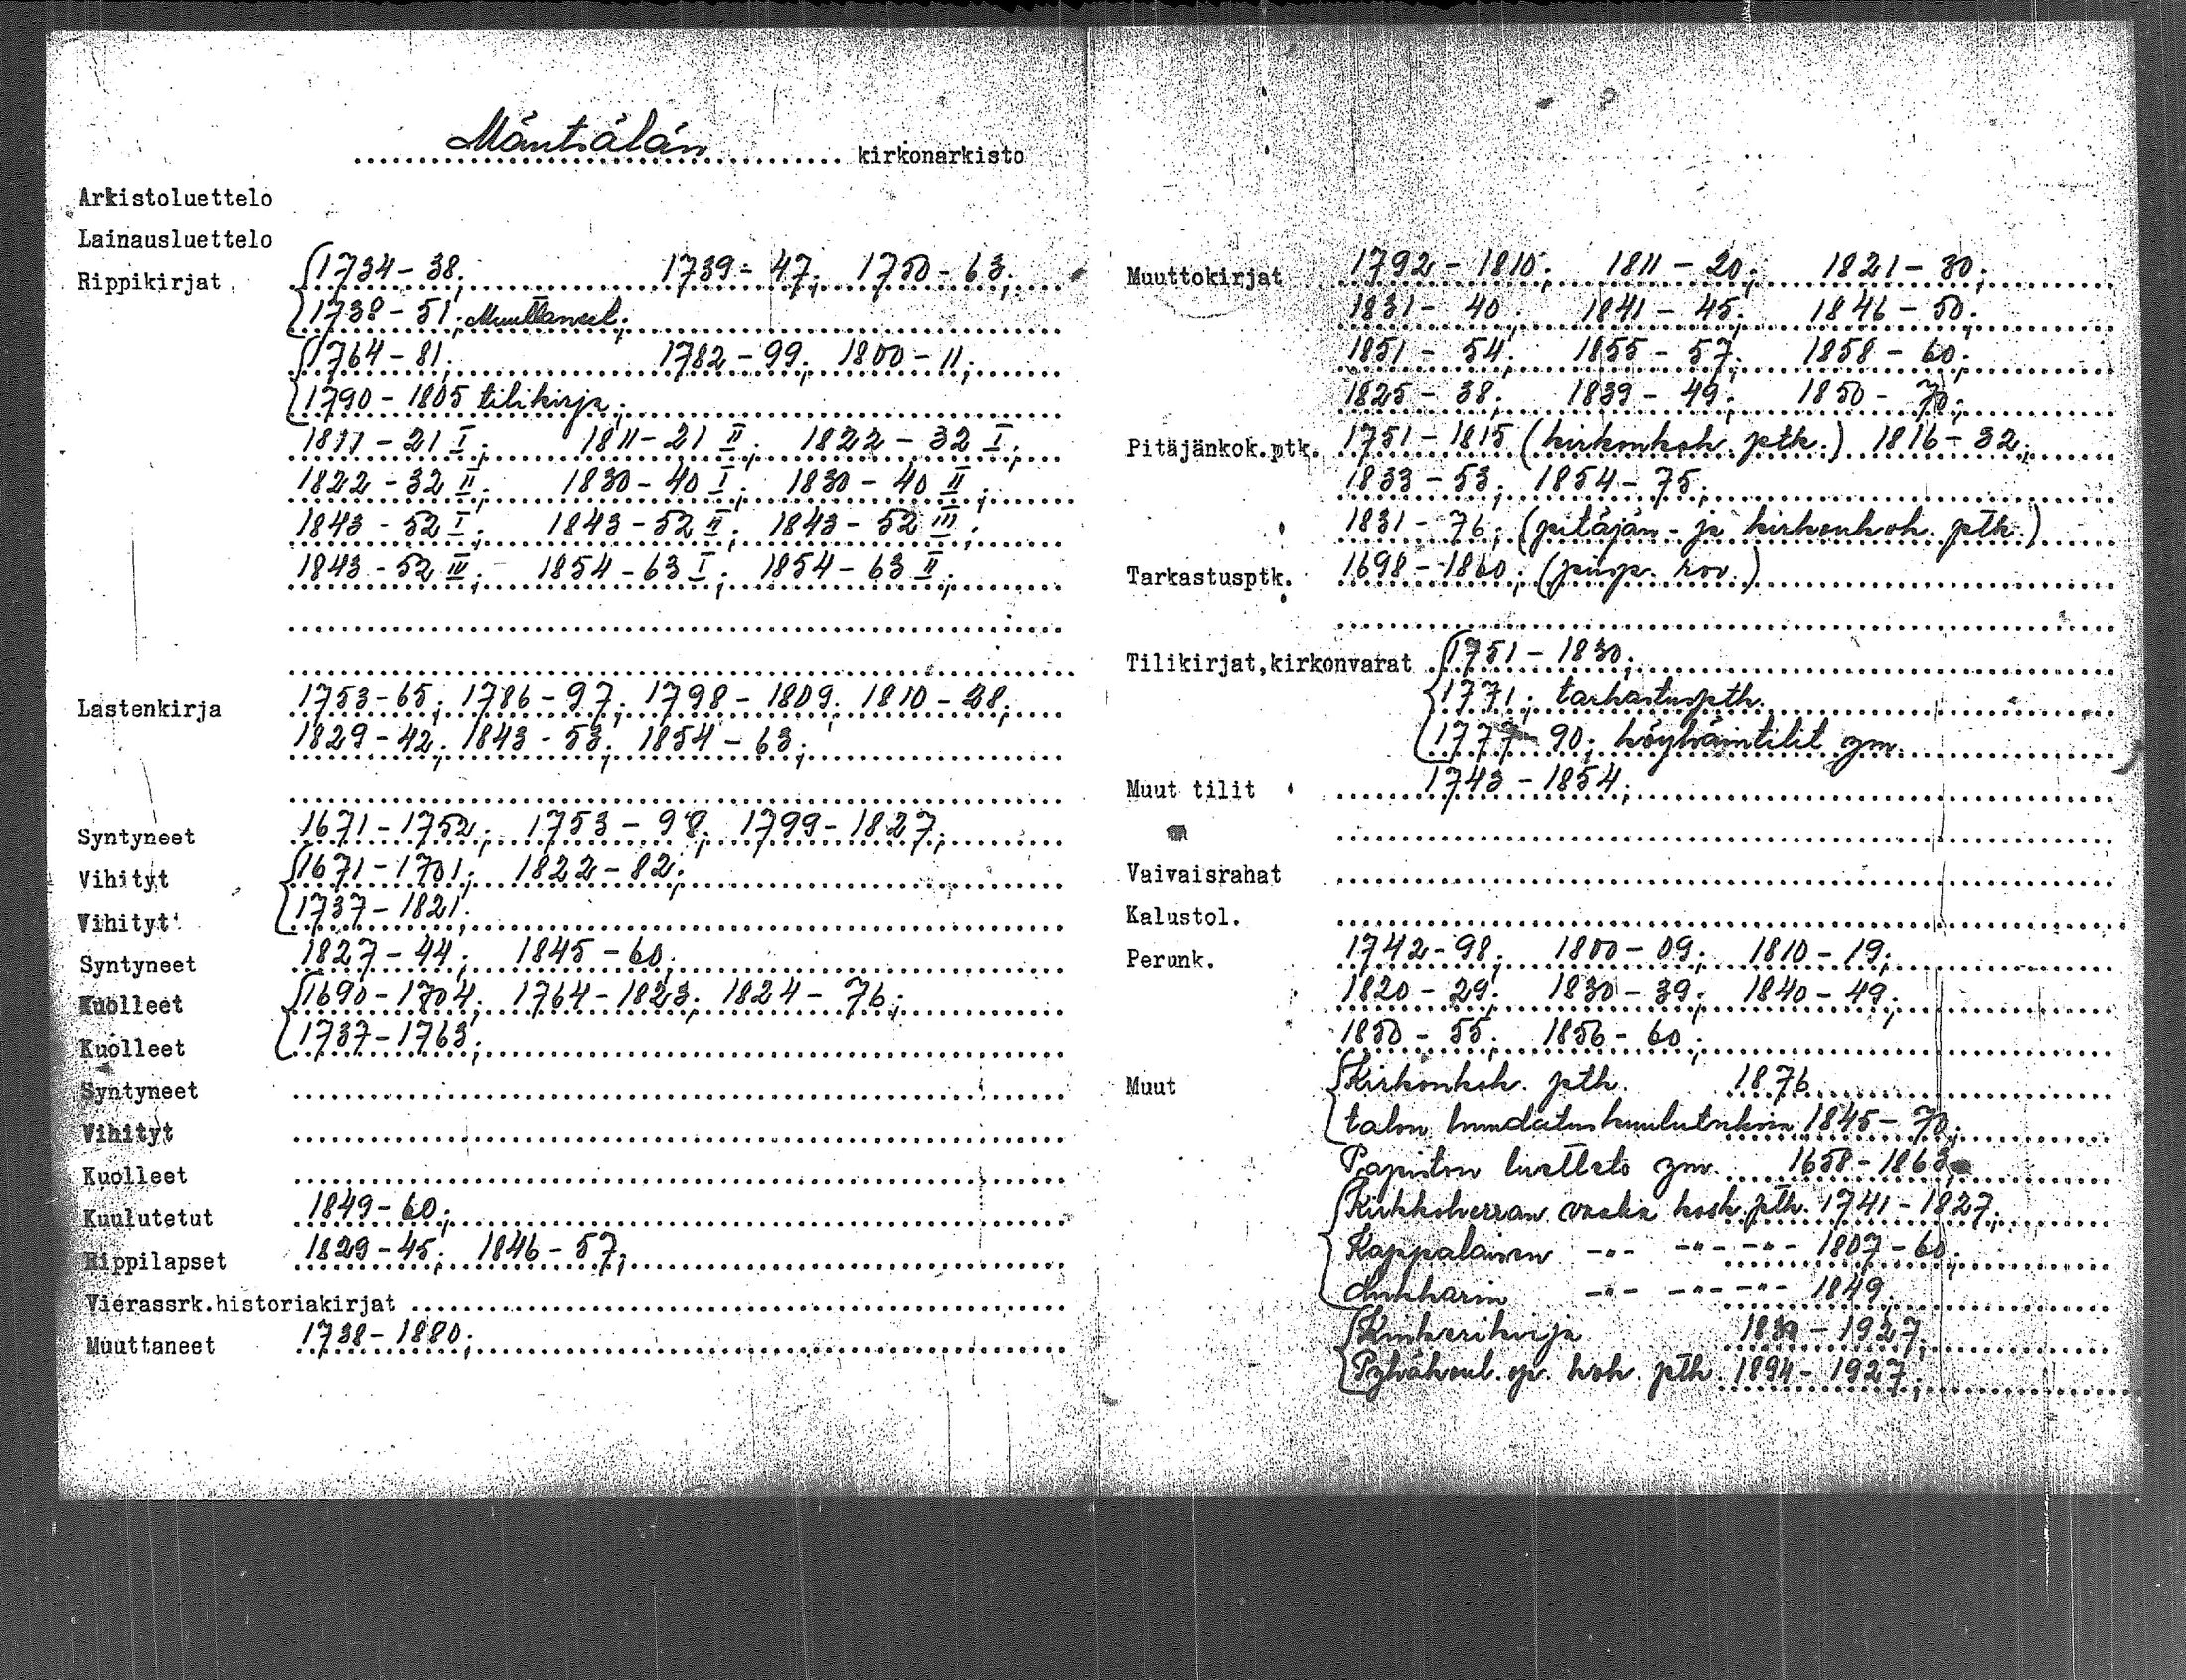 Mäntsälän kirkonarkisto
Arkistoluettelo
Lainausluettelo
Rippikirjat 1734-38; 1739-47; 1750-63;
1738-51; Muuttaneet;
1764-81; 1782-99; 1800-11;
1790-1805 tilikirja;
1811-21 I; 1811-21 II; 1822-32 I;
1822-32 II; 1830-40 I; 1830-40 II;
1843-52 I; 1843-52 II; 1843-52 III;
1843-52 III; 1854-63 I; 1854-63 II;
Lastenkirja 1753-65; 1786-97; 1798-1809; 1810-28;
1829-42; 1843-53; 1854-63;
Syntyneet 1671-1752; 1753-98; 1799-1827;
Vihityt 1671-1701; 1822-82;
Vihityt 1737-1821;
Syntyneet 1827-44; 1845-60;
Kuolleet 1690-1704; 1764-1823; 1824-76;
Kuolleet 1737-1763;
Syntyneet
Vihityt
Kuolleet
Kuulutetut 1849-60;
Rippilapset 1829-45; 1846-57;
Vierassrk.historiakirjat
Muuttaneet 1738-1880;
Muuttokirjat 1792-1810; 1811-20; 1821-30;
1831-40; 1841-45; 1846-50;
1851-54; 1855-57; 1858-60;
1825-38; 1839-49; 1850-70;
Pitäjänkok.ptk. 1751-1815 (kirkonkok. ptk.) 1816-32;
1833-53; 1854-75;
1831-76; (pitäjän- ja kirkonkok. ptk.)
Tarkastusptk. 1698-1860; (piisp. rov.)
Tilikirjat,kirkonvarat 1751-1830;
1771; tarkastusptk.
1777-90; köyhäintilit ym.
Muut tilit 1743-1854;
Vaivaisrahat
Kalustol.
Perunk. 1742-98; 1800-09; 1810-19;
1820-29; 1830-39; 1840-49;
1850-55; 1856-60;
Muut Kirkonkok. ptk. 1876
talon 1845-70;
Papiston luettelo ym. 1658-1863;
Kirkkoherran vaalia kosk. ptk. 1741-1827;
Kappalaisen -"- -"- -"- 1807-60;
Lukkarin -"- -"- -"- 1849;
Kinkerikirja 1839-1927;
Pyhäkoul. op. kok. ptk. 1894-1927;